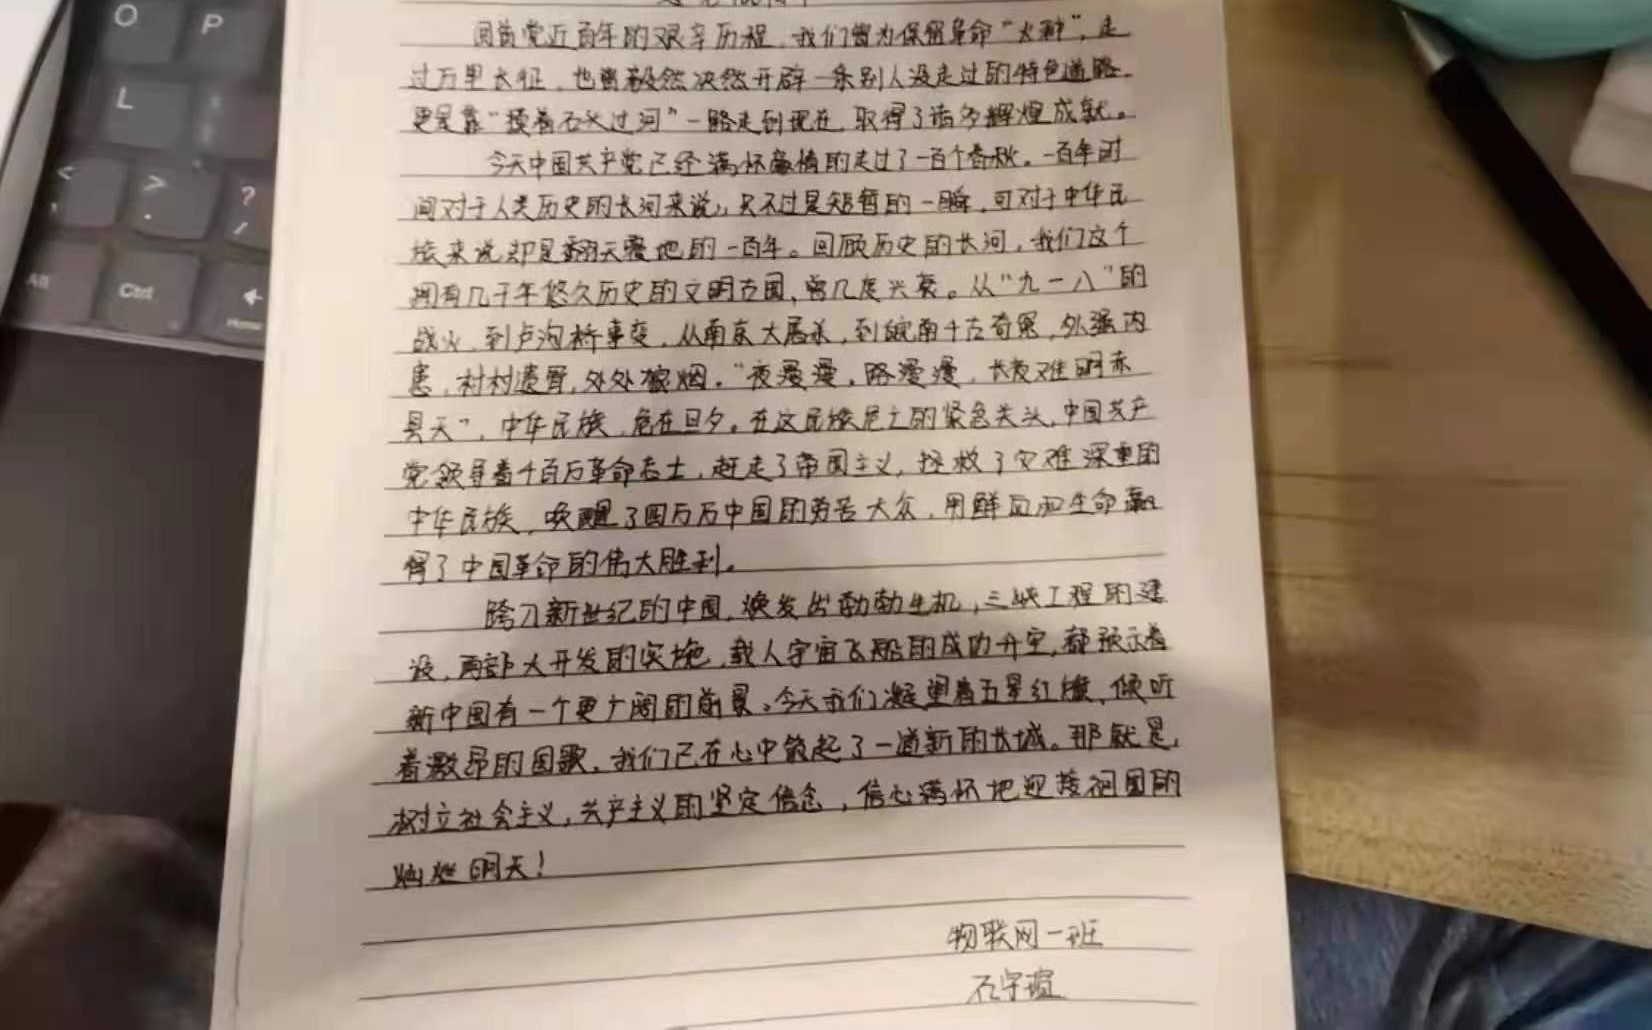 O
P
L
<
,
>
.
?
/
Alt
Ctrl
Home
回首党近百年的艰辛历程，我们曾为保留革命“火种”，走
过万里长征，也曾毅然决然开辟一条别人没走过的特色道路，
更是靠“摸着石头过河”一路走到现在，取得了诸多辉煌成就。
今天中国共产党已经满怀豪情的走过了一百个春秋。一百年时
间对于人类历史的长河来说，只不过是短暂的一瞬，可对于中华民
族来说却是翻天覆地的一百年。回顾历史的长河，我们这个
拥有几千年悠久历史的文明古国，曾几度兴衰。从“九一八”的
战火，到卢沟桥事变，从南京大屠杀，到皖南千古奇冤，外强内
患，村村遗骨，处处狼烟。“夜漫漫，路漫漫，长夜难明赤
县天”，中华民族，危在旦夕。在这民族危亡的紧急关头，中国共产
党领导着千百万革命志士，赶走了帝国主义，拯救了灾难深重的
中华民族，唤醒了四万万中国的劳苦大众，用鲜血和生命赢
得了中国革命的伟大胜利。
跨入新世纪的中国，焕发出勃勃生机，三峡工程的建
设，西部大开发的实施，载人宇宙飞船的成功升空，都预示着
新中国有一个更广阔的前景。今天我们凝望着五星红旗、倾听
着激昂的国歌，我们已在心中筑起了一道新的长城。那就是，
树立社会主义，共产主义的坚定信念，信心满怀地迎接祖国的
灿烂明天！
物联网一班
石宇瑄